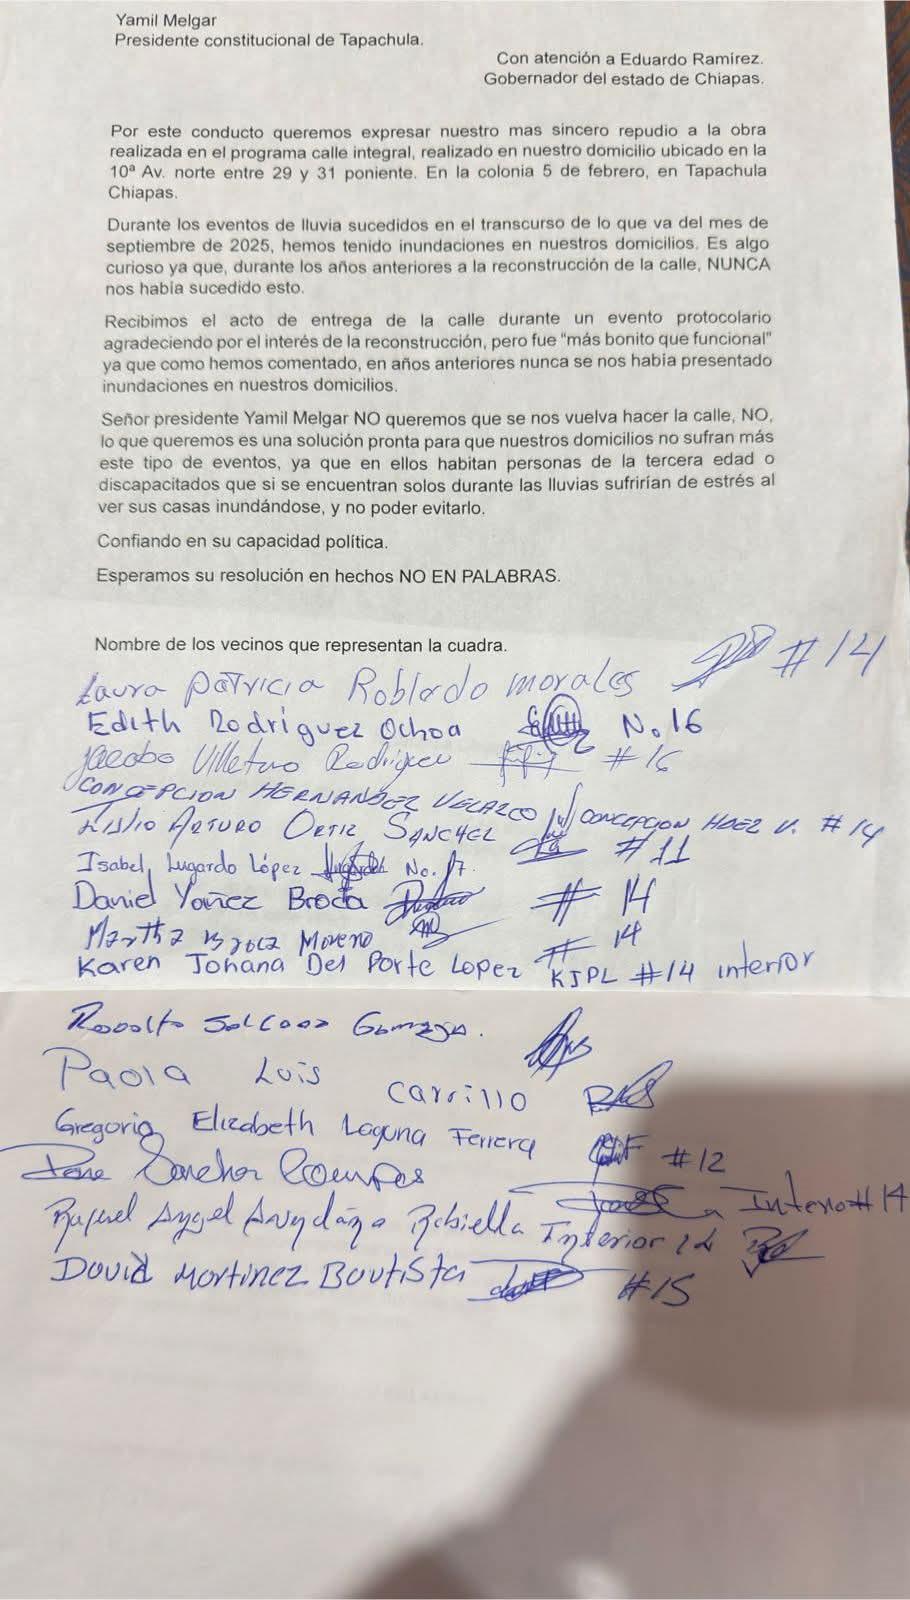 Yamil Melgar
Presidente constitucional de Tapachula.
Con atención a Eduardo Ramírez.
Gobernador del estado de Chiapas.
Por este conducto queremos expresar nuestro mas sincero repudio a la obra
realizada en el programa calle integral, realizado en nuestro domicilio ubicado en la
10ª Av. norte entre 29 y 31 poniente. En la colonia 5 de febrero, en Tapachula
Chiapas.
Durante los eventos de lluvia sucedidos en el transcurso de lo que va del mes de
septiembre de 2025, hemos tenido inundaciones en nuestros domicilios. Es algo
curioso ya que, durante los años anteriores a la reconstrucción de la calle, NUNCA
nos había sucedido esto.
Recibimos el acto de entrega de la calle durante un evento protocolario
agradeciendo por el interés de la reconstrucción, pero fue “más bonito que funcional”
ya que como hemos comentado, en años anteriores nunca se nos había presentado
inundaciones en nuestros domicilios.
Señor presidente Yamil Melgar NO queremos que se nos vuelva hacer la calle, NO,
lo que queremos es una solución pronta para que nuestros domicilios no sufran más
este tipo de eventos, ya que en ellos habitan personas de la tercera edad o
discapacitados que si se encuentran solos durante las lluvias sufrirían de estrés al
ver sus casas inundándose, y no poder evitarlo.
Confiando en su capacidad política.
Esperamos su resolución en hechos NO EN PALABRAS.
Nombre de los vecinos que representan la cuadra.
Laura Patricia Robledo morales #14
Edith Rodriguez Ochoa No.16
Jacobo Rodriguez #16
CONCEPCION HERNANDEZ VELAZCO CONCEPCION HDEZ V. #14
ARTURO ORTIZ SANCHEZ #11
Isabel Lugardo López No. 17
Daniel Yañez Broca #14
Martha Broca Moreno #14
Karen Johana Del Porte Lopez KJPL #14 interior
Rodolfo
Paola Luis Carrillo
Gregoria Elizabeth Laguna Ferrera #12
Sanchez Interio #14
Rafael Angel Interior 14
David Martinez Bautista #15